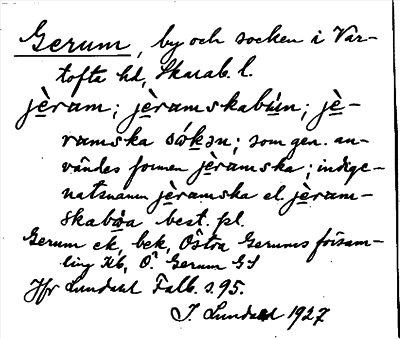 Gerum, by och socken i Var-
tofta hd, Skarab. l.
jèram; jèramskabỳin; jè-
ramska sókən; som gen. an-
vändes formen jèramska; indige-
natsnamn jèramska el. jèram-
skabọa best. pl.
Gerum ek, bek, Östra Gerums försam-
ling Kb, Ö. Gerum GS
Jfr Lundahl Falb. s. 95.
I. Lundahl 1927